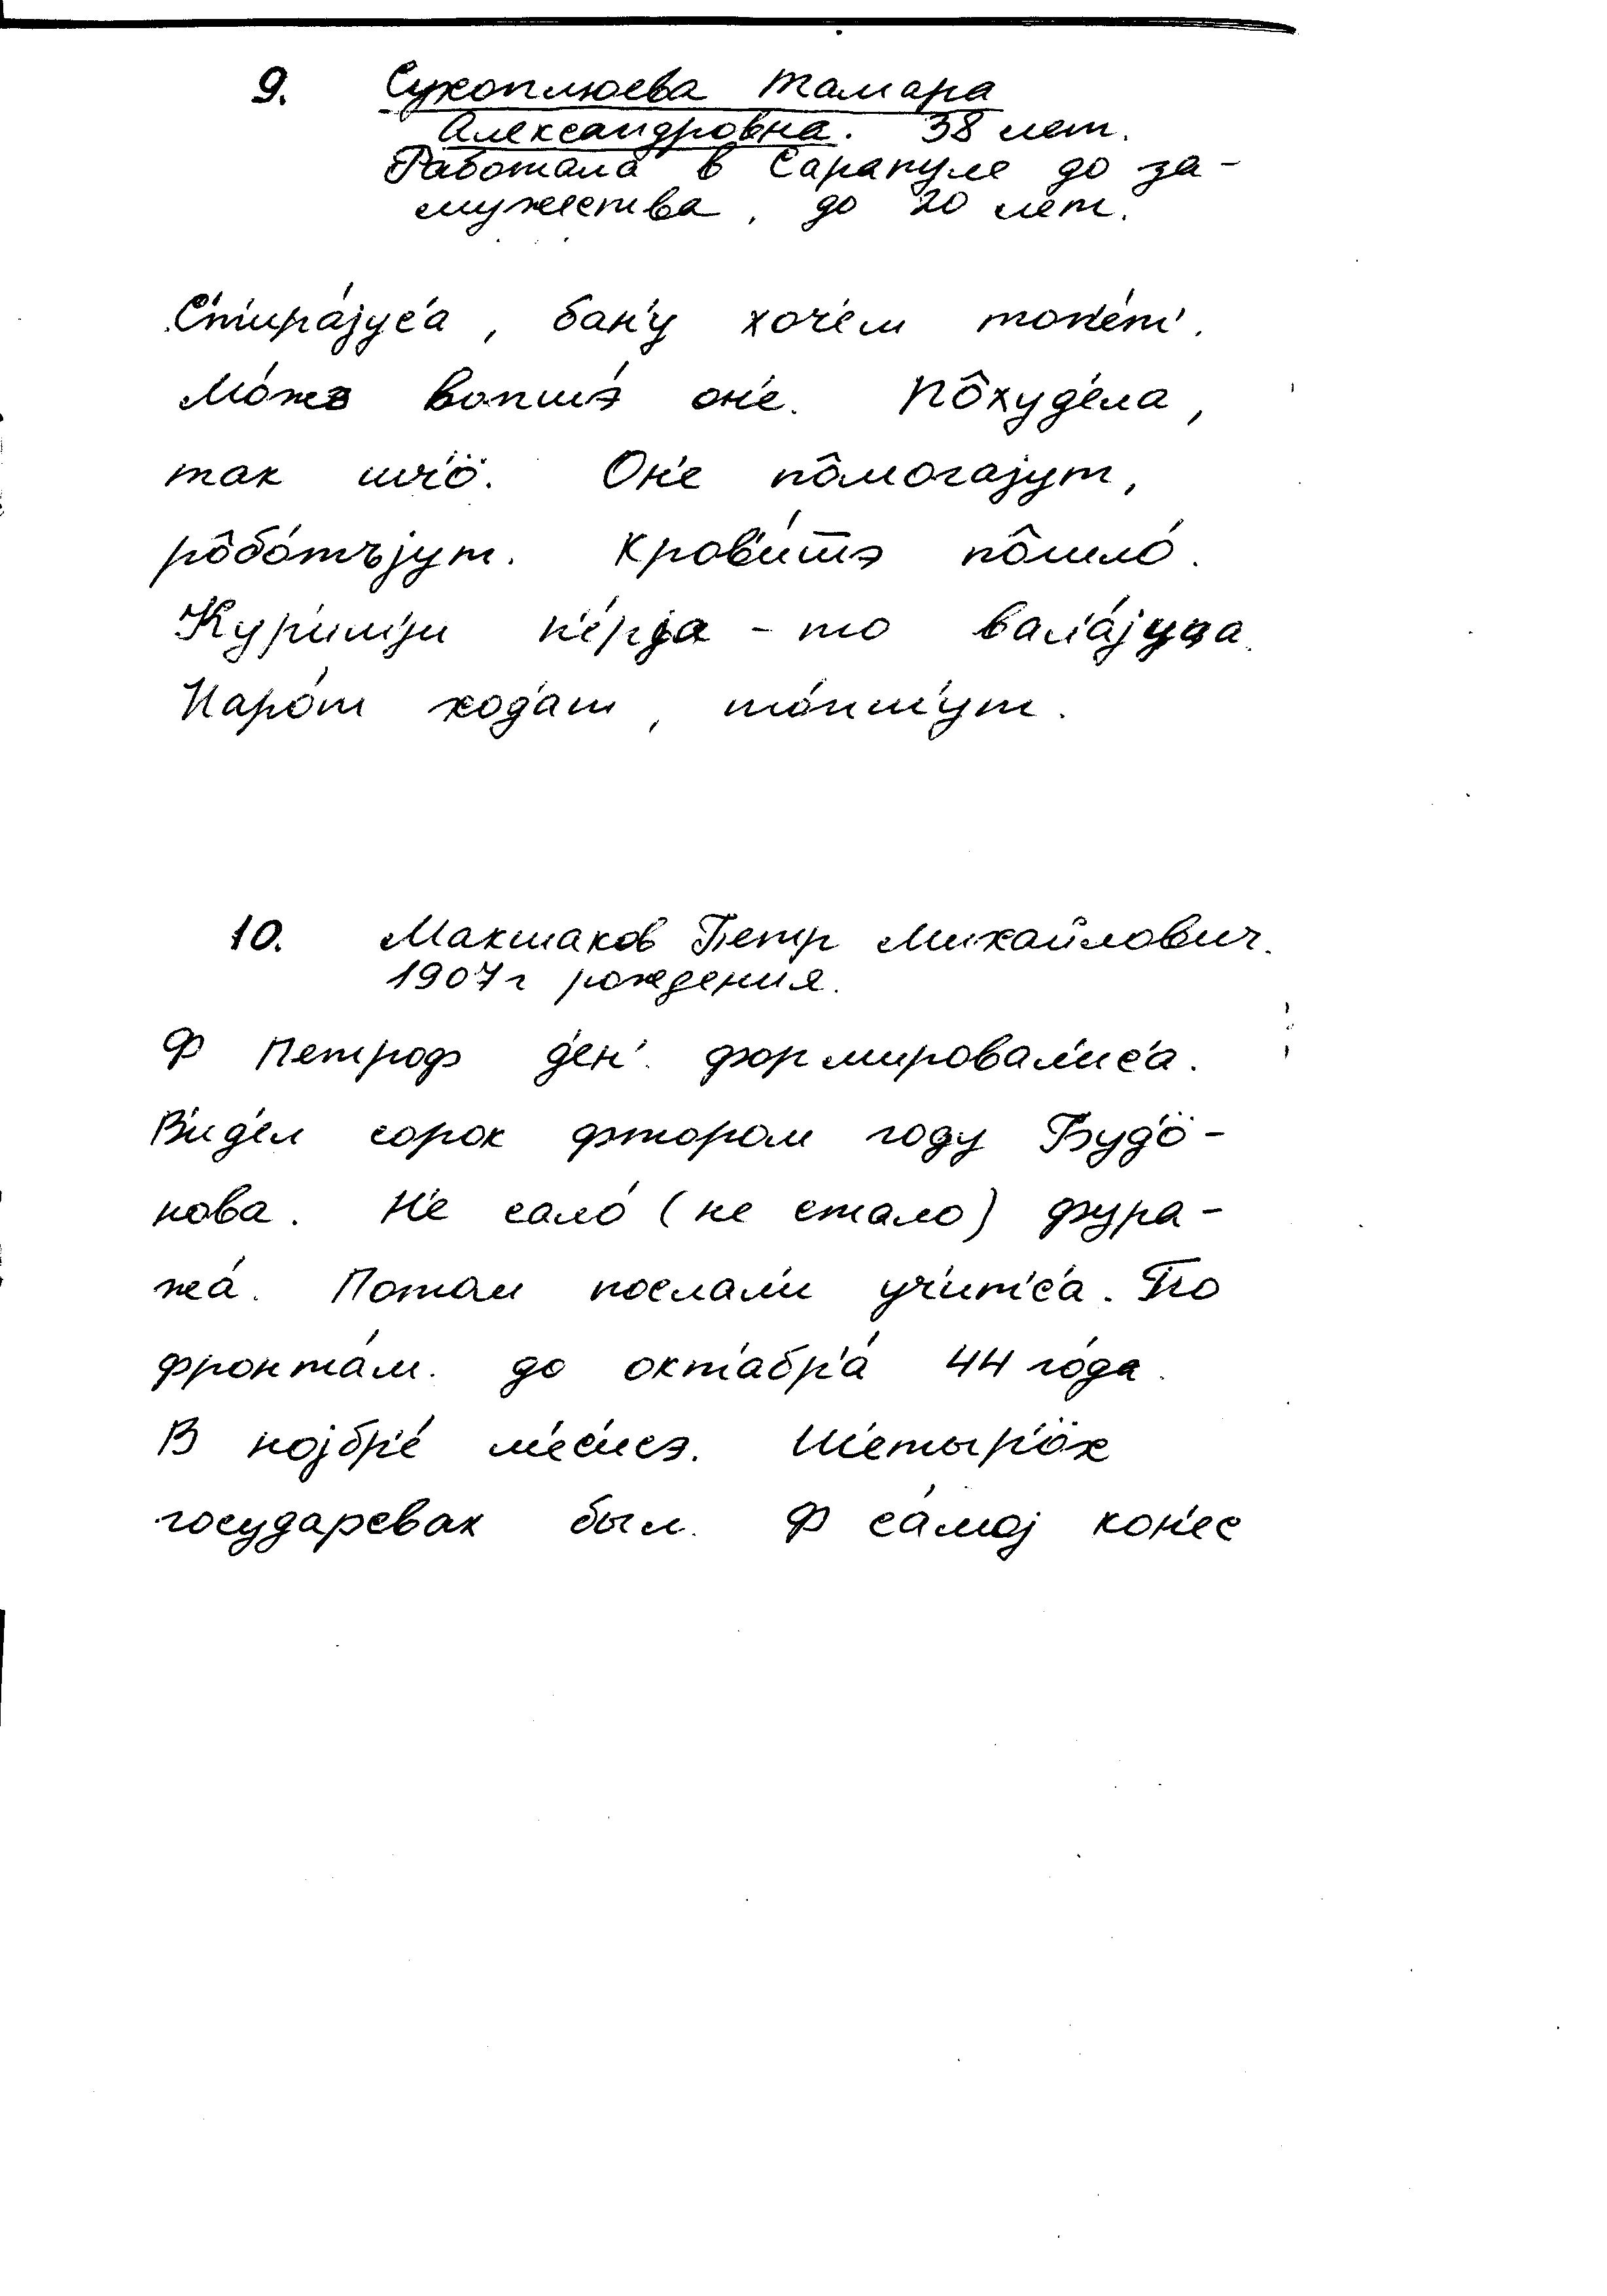 9. Сухоплюева Тамара
Александровна. 38 лет.
Работала в Сарапуле до за-
мужества, до 20 лет.
С'т'ира́јус'а, бан'у хоч'ем топ'е́т'.
Мо́жэ вопшэ́ он'е. По̂худ'е́ла,
так шч'ӧ. Он'е по̂могајут,
ро̂бо́тъјут. Кров'и́т̄э по̂шло́.
Кур'ицы п'е́рја-то вал'а́јуца.
Наро́т ход'ат, то́пч'ут.
10. Макшаков Петр Михайлович.
1907г рождения.
Ф Петроф д'ен'. формировал'ис'а.
В'ид'ел сорок фтором году Буд'ӧ-
нова. Н'е сало́ (не стало) фура-
жа́. Потом послал'и уч'ит'с'а. По
фронта́м. до окт'абр'а́ 44 го́да.
В нојбр'е́ м'ес'исэ. Ш'етыр'ӧх
государсвах был. Ф са́мој кон'ес